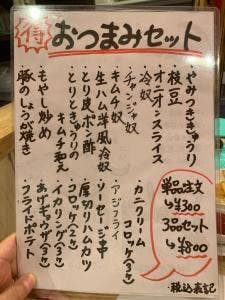 得 おつまみセット
・やみつききゅうり
・枝豆
・オニオンスライス
・冷奴
・チャンジャ奴
・キムチ奴
・生ハム洋風冷奴
・とり皮ポン酢
・とりときゅうりの
キムチ和え
・もやし炒め
・豚のしょうが焼き
・カニクリーム
コロッケ(2ヶ)
・アジフライ
・ソーセージ串
・厚切りハムカツ
・コロッケ(2ヶ)
・イカリング(3ヶ)
・あげギョウザ(3ヶ)
・フライドポテト
単品注文
↳¥300
3品セット
↳¥800
・税込表記